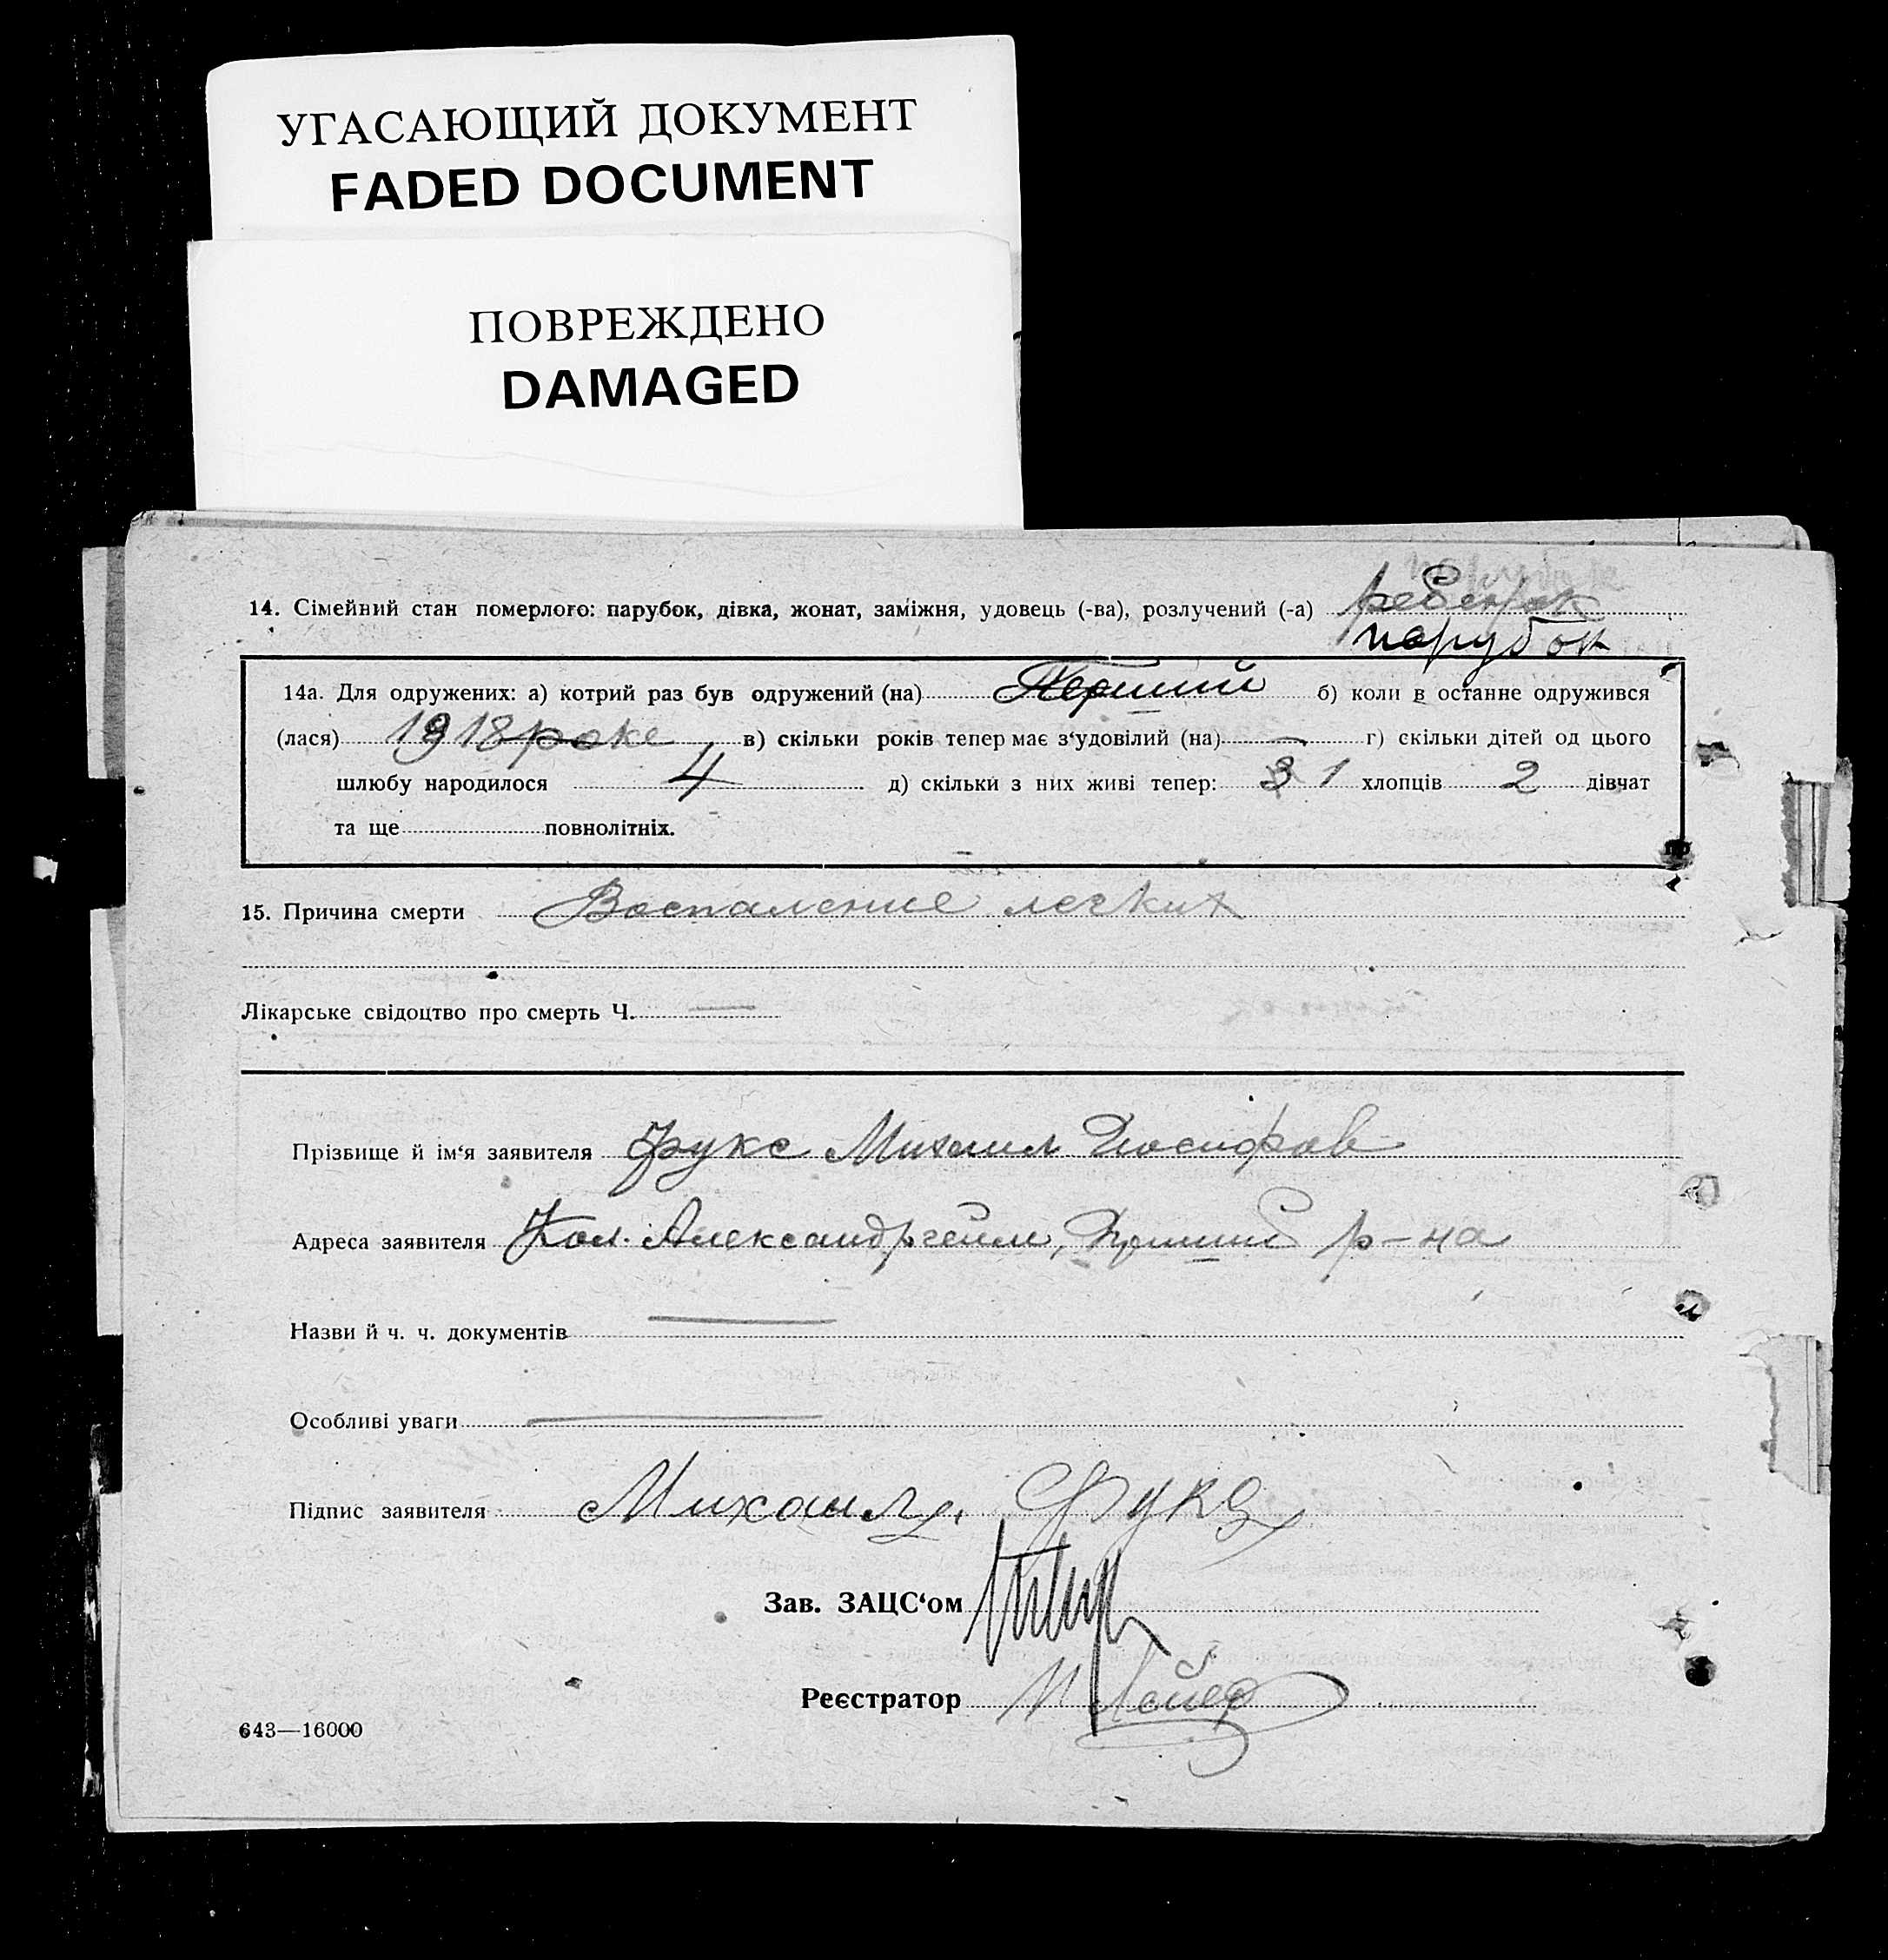 УГАСАЮЩИЙ ДОКУМЕНТ
FADED DOCUMENT
ПОВРЕЖДЕНО
DAMAGED
14. Сімейний стан померлого: парубок, дівка, жонат, заміжня, удовець (-ва), розлучений (-а)
парубок
14а. Для одружених: а) котрий раз був одружений (на) Перший б) коли в останне одружився
(лася) 1918 роке в) скільки років тепер має з‘удовілий (на) — г) скільки дітей од цього
шлюбу народилося 4 д) скільки з них живі тепер: 1 хлопців 2 дівчат
та ще повнолітніх.
15. Причина смерти Воспаление легких
Лікарське свідоцтво про смерть Ч. —
Прізвище й ім‘я заявителя Фукс Михаил Иосифов
Адреса заявителя Кол. Александргейм, р-на
Назви й ч. ч. документів —
Особливі уваги —
Підпис заявителя Михаил Фукс
Зав. ЗАЦС‘ом
Реєстратор
643—16000